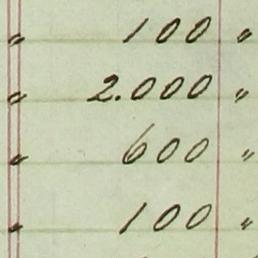 " 100 "
" 2.000 "
" 600 "
" 100 "